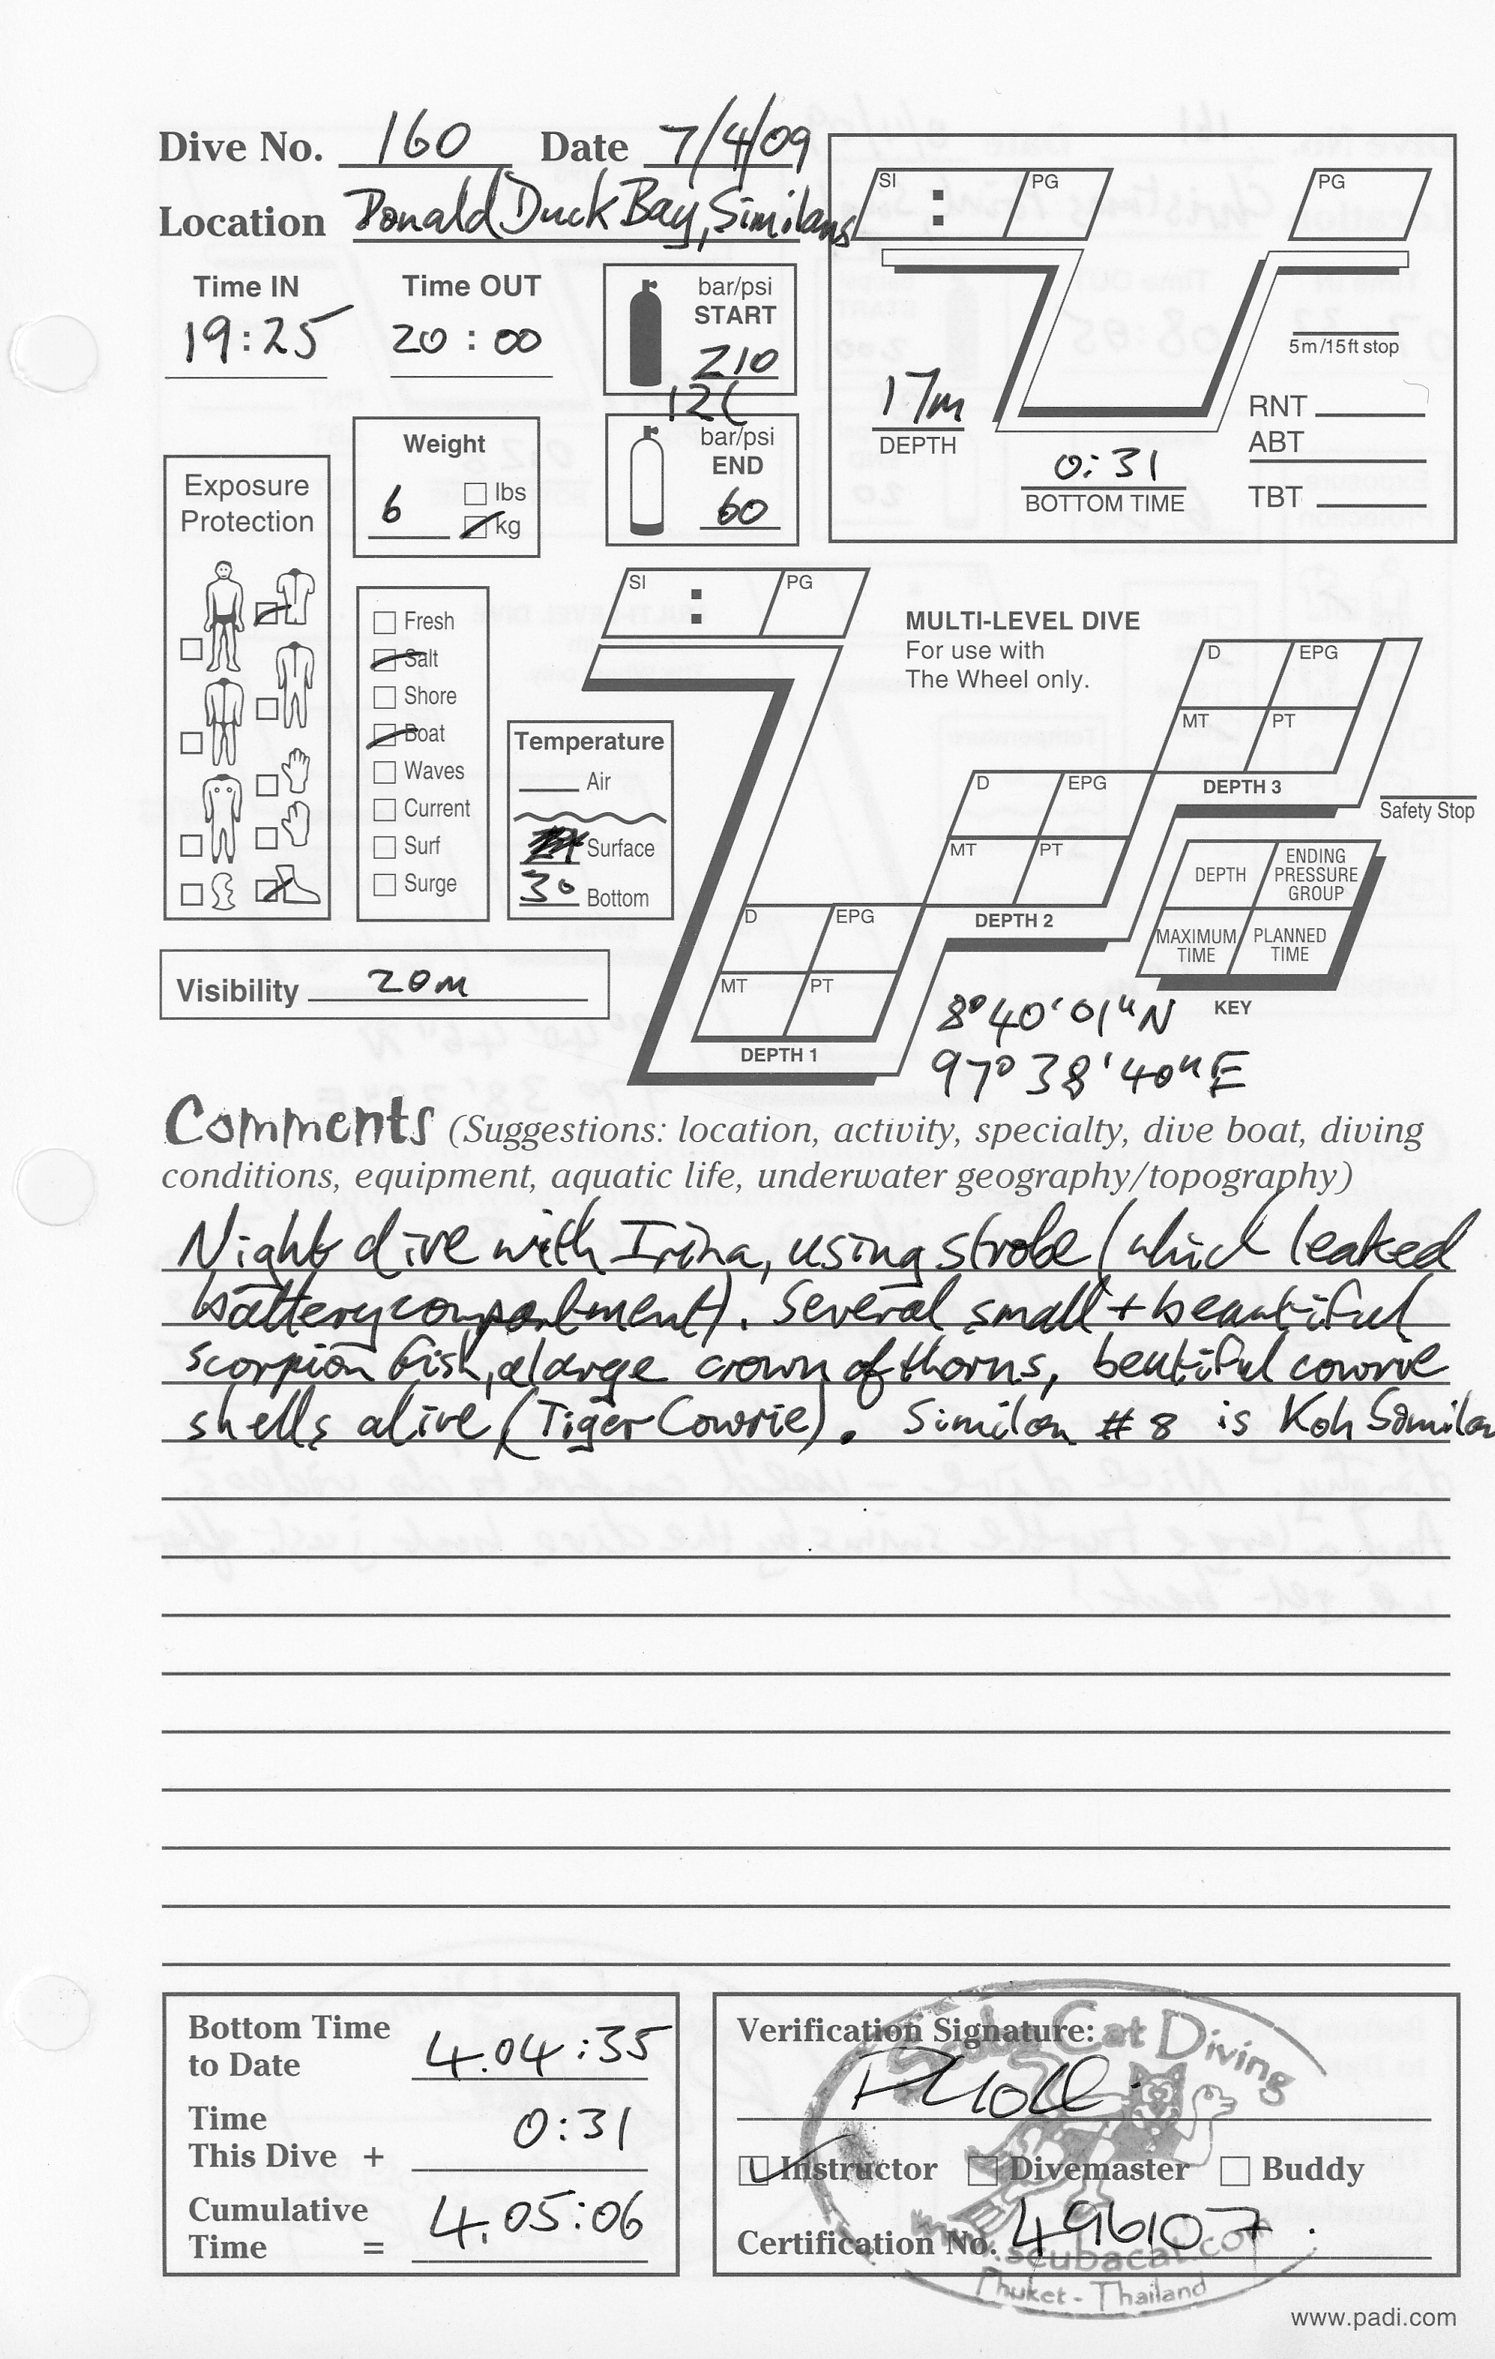 Dive No. 160 Date 7/4/09
Location Donald Duck Bay, Similans
Time IN Time OUT
19:25 20:00
bar/psi
START
210
12(
bar/psi
END
60
SI : PG PG
17m
DEPTH
0:31
BOTTOM TIME
5m/15ft stop
RNT
ABT
TBT
Weight
6 lbs
kg
Exposure
Protection
Fresh
Salt
Shore
Boat
Waves
Current
Surf
Surge
Temperature
Air
Surface
30 Bottom
Visibility 20m
SI : PG
MULTI-LEVEL DIVE
For use with
The Wheel only.
D EPG
MT PT
DEPTH 3
Safety Stop
D EPG
MT PT
DEPTH 2
D EPG
MT PT
DEPTH 1
DEPTH ENDING PRESSURE GROUP
MAXIMUM TIME PLANNED TIME
KEY
8°40'01"N
97°38'40"E
Comments (Suggestions: location, activity, specialty, dive boat, diving
conditions, equipment, aquatic life, underwater geography/topography)
Night dive with Irina, using strobe (which leaked
battery compartment). Several small + beautiful
scorpion fish, a large crown of thorns, beutiful cowrie
shells alive (Tiger Cowrie). Similan #8 is Koh Similan
Bottom Time
to Date 4.04:35
Time
This Dive + 0:31
Cumulative
Time = 4.05:06
Verification Signature:
Instructor Divemaster Buddy
Certification No. 496107
Scuba Cat Diving
www.scubacat.com
Phuket - Thailand
www.padi.com